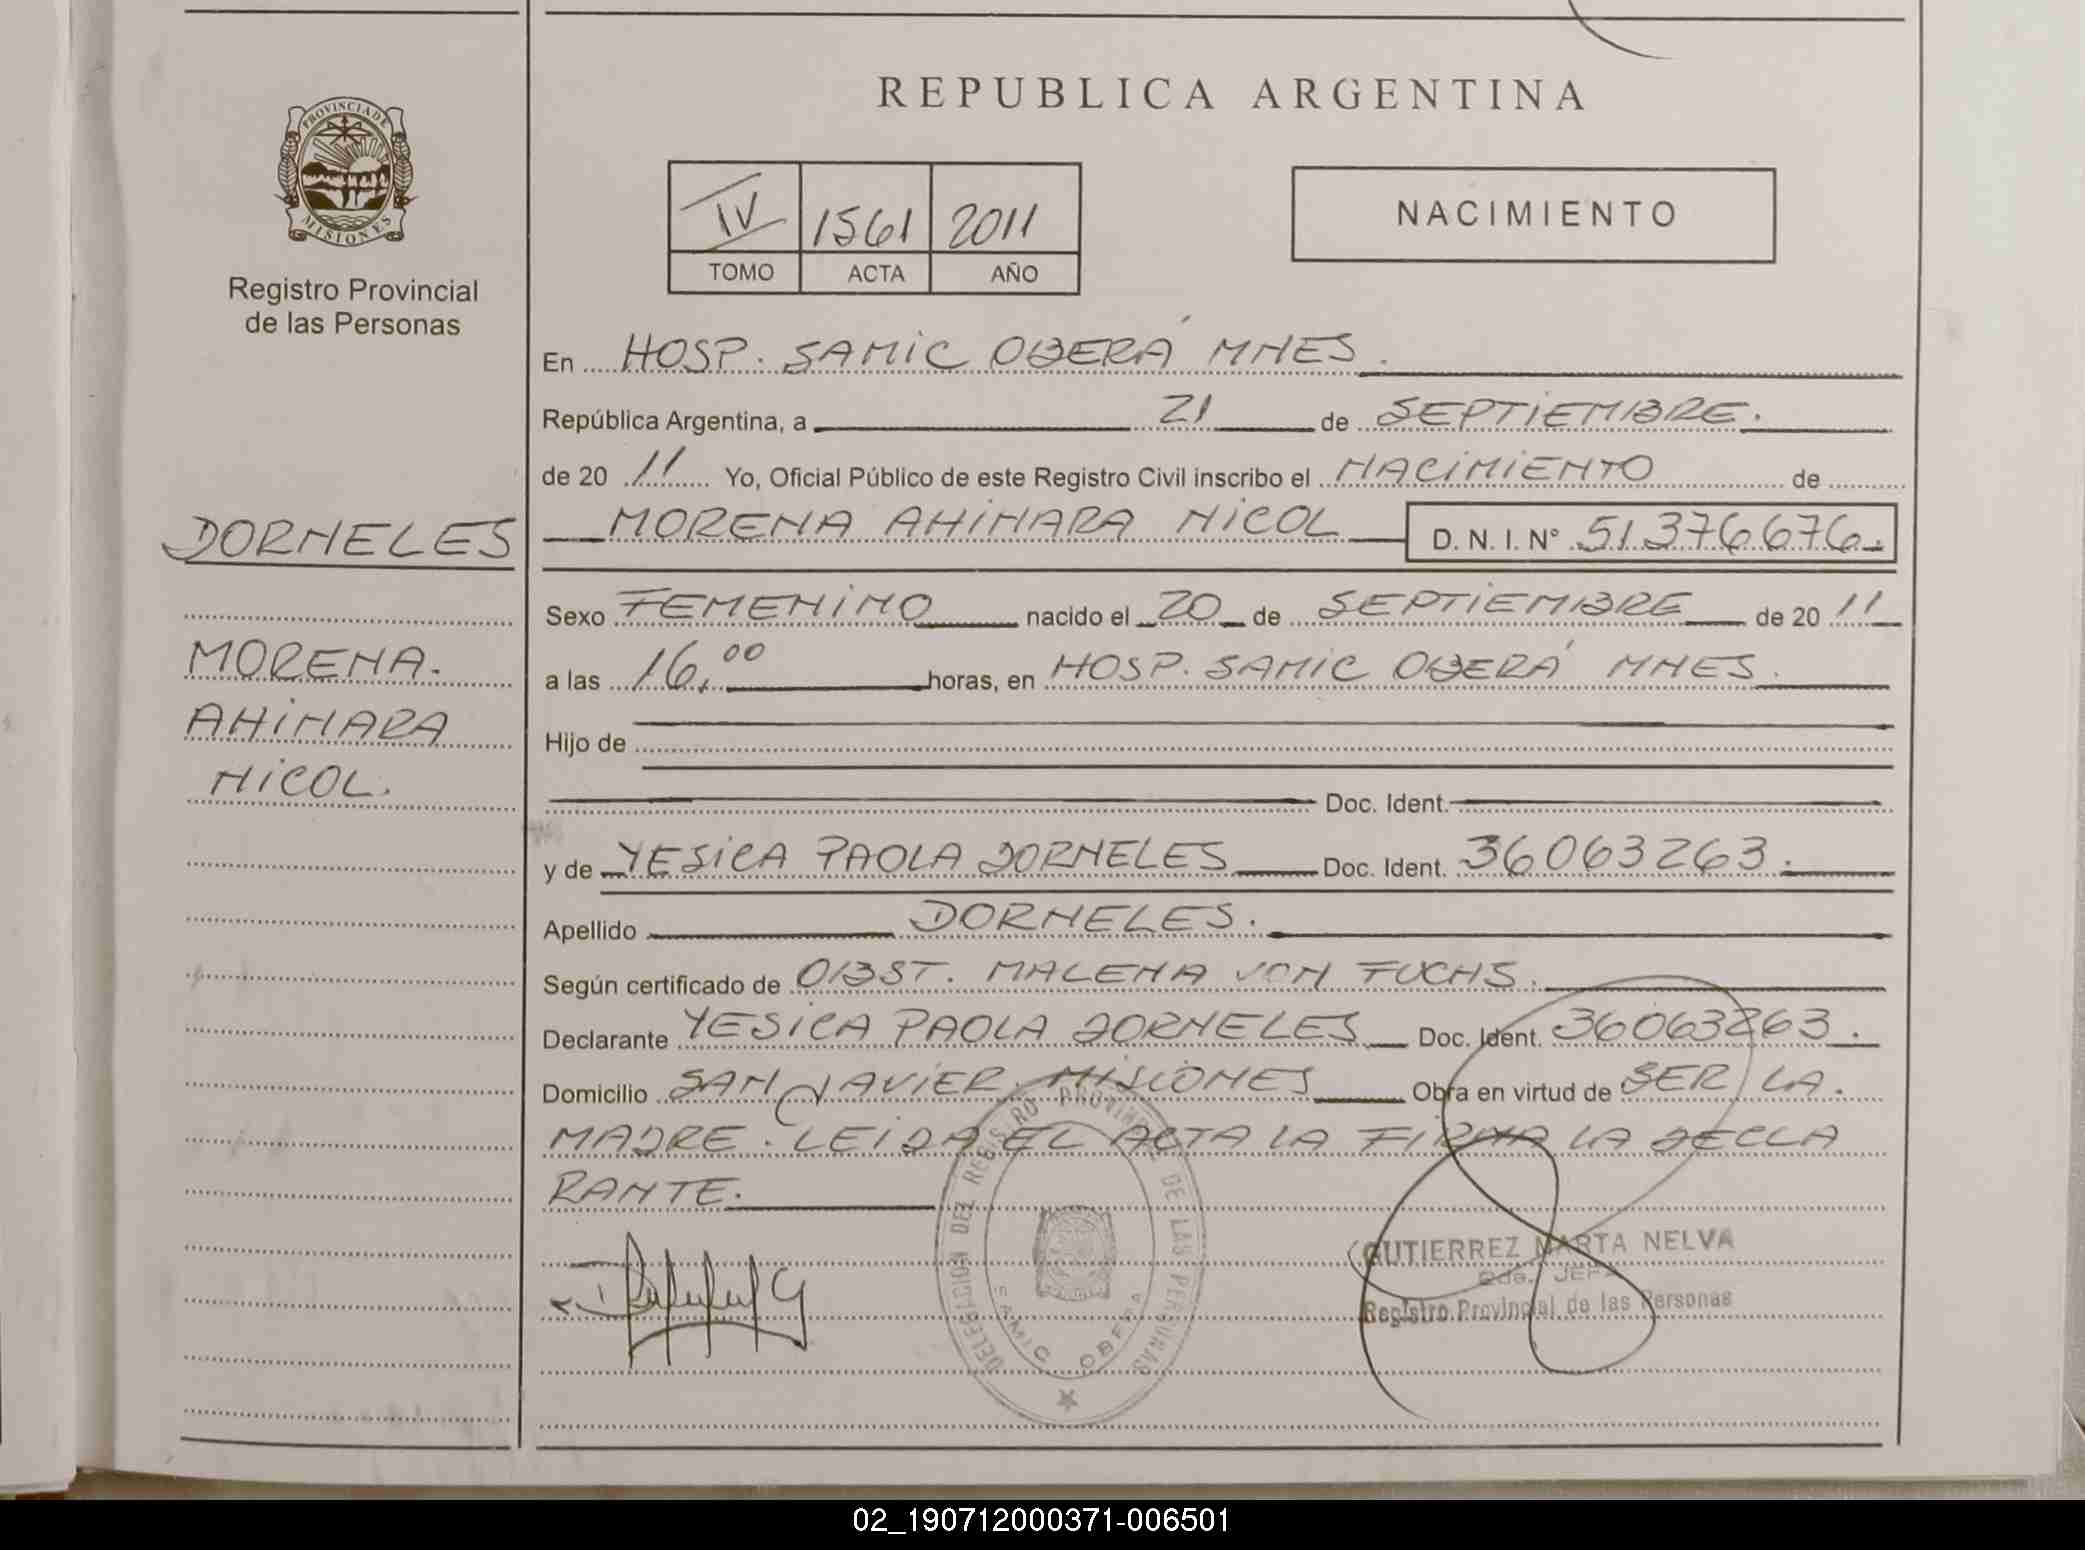 REPUBLICA ARGENTINA
PROVINCIA DE
MISIONES
Registro Provincial
de las Personas
IV 1561 2011
TOMO ACTA AÑO
NACIMIENTO
En HOSP. SAMIC OBERÁ MNES.
República Argentina, a 21 de SEPTIEMBRE.
de 20 11 Yo, Oficial Público de este Registro Civil inscribo el NACIMIENTO de
DORNELES
MORENA AHINARA NICOL D. N. I. N° 51376676.
Sexo FEMENINO nacido el 20 de SEPTIEMBRE de 20 11
MORENA.
a las 16,00 horas, en HOSP. SAMIC OBERÁ MNES.
AHINARA
Hijo de
NICOL.
Doc. Ident.
y de YESICA PAOLA DORNELES Doc. Ident. 36063263.
Apellido DORNELES.
Según certificado de OBST. MALENA VON FUCHS.
Declarante YESICA PAOLA DORNELES Doc. Ident. 36063263.
Domicilio SAN JAVIER. MISIONES Obra en virtud de SER LA.
MADRE. LEIDA EL ACTA LA FIRMA LA DECLA
RANTE.
DELEGACION DEL REGISTRO PROVINCIAL DE LAS PERSONAS
SAMIC OBERA
GUTIERREZ MARTA NELVA
2da. JEFA
Registro Provincial de las Personas
02_190712000371-006501